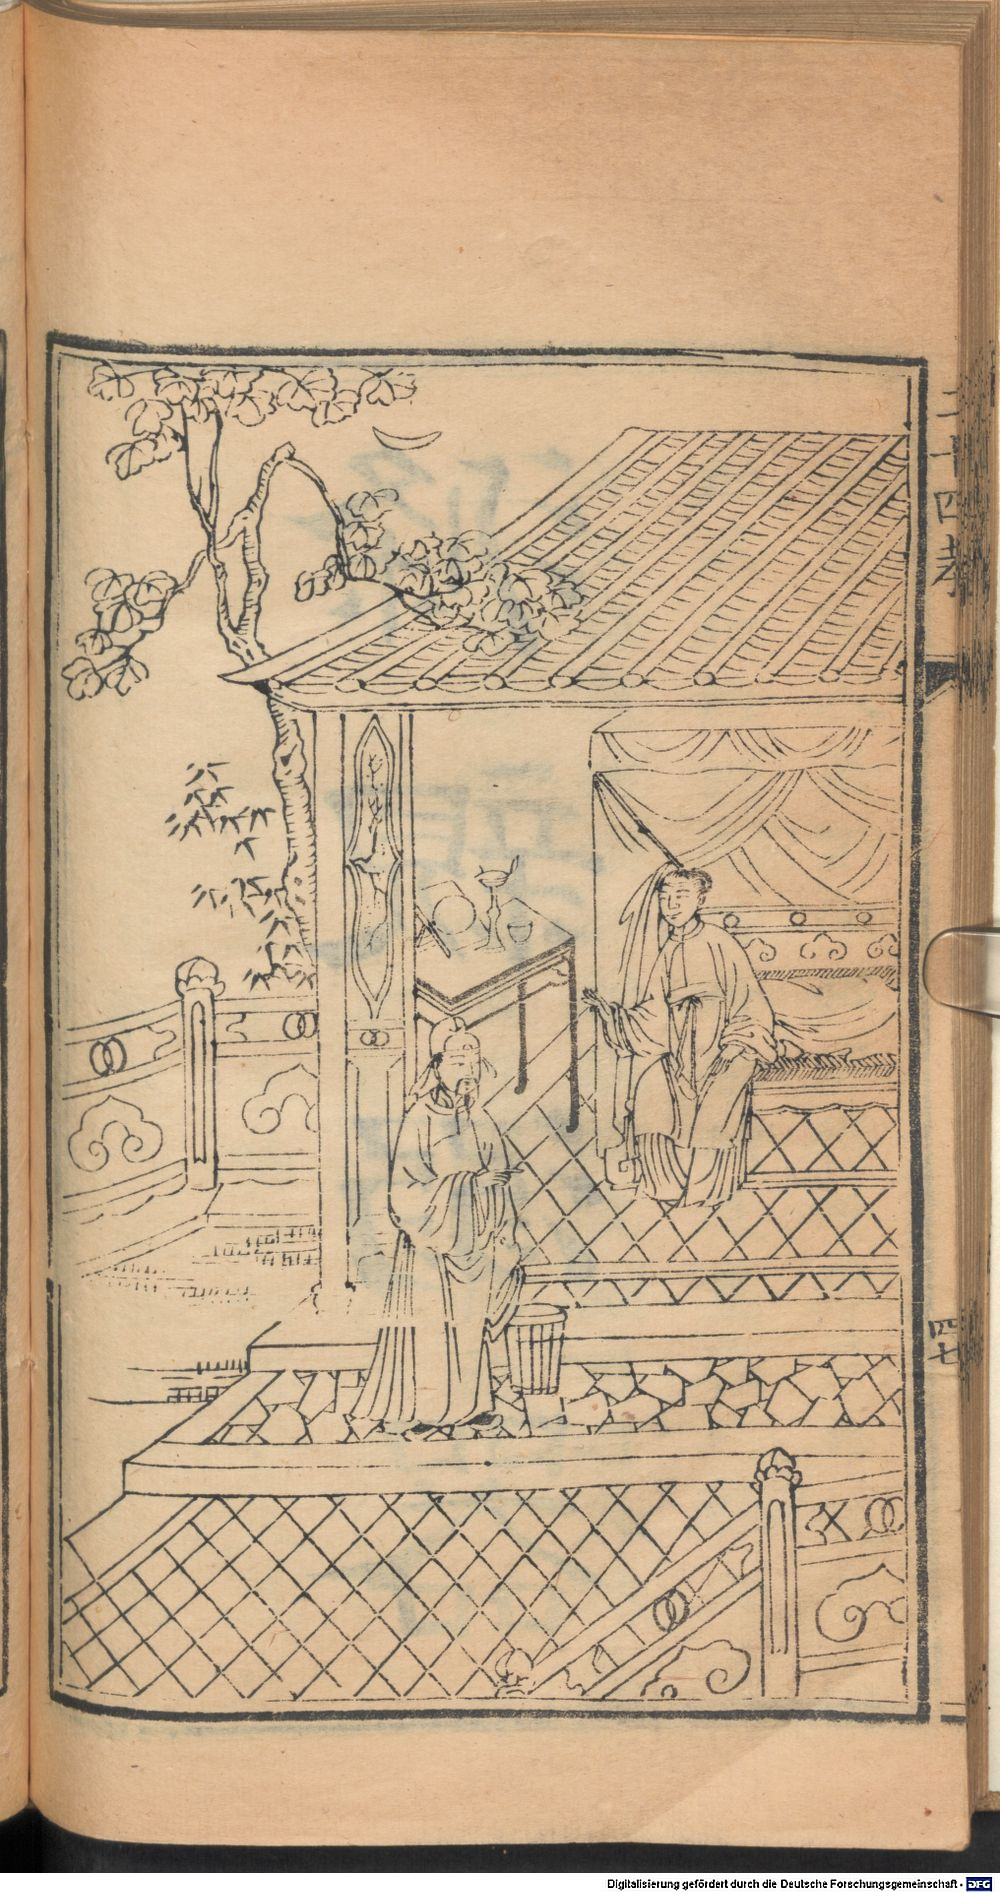 二十四孝
四七
Digitalisierung gefördert durch die Deutsche Forschungsgemeinschaft - DFG